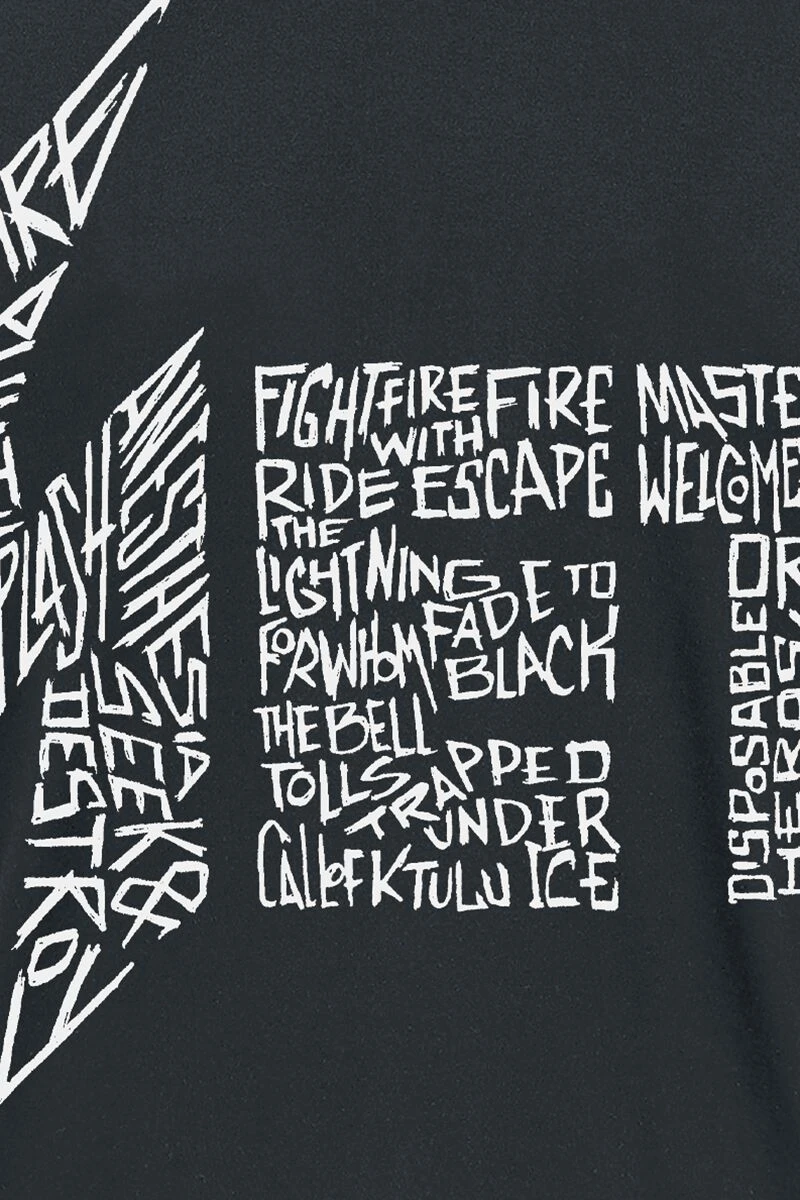 PLASH
ANESTHESIA
SEEK &
DESTROY
FIGHT FIRE WITH FIRE
RIDE THE LIGHTNING
ESCAPE
FOR WHOM THE BELL TOLLS
FADE TO BLACK
TRAPPED UNDER ICE
CALL OF KTULU
MASTE
WELCOME
DISPOSABLE
HEROS
OR